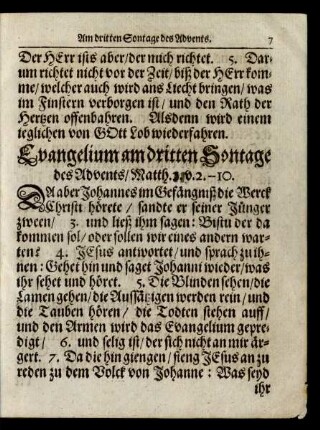 Am dritten Sontage des Advents. 7
Der HErr ists aber/der mich richtet. 5. Dar-
um richtet nicht vor der Zeit/biß der HErr kom-
me/welcher auch wird ans Liecht bringen/was
im Finstern verborgen ist/und den Rath der
Hertzen offenbahren. Alsdenn wird einem
ieglichen von GOtt Lob wiederfahren.
Evangelium am dritten Sontage
des Advents/Matth. 11. v. 2.-10.
DA aber Johannes im Gefängniß die Werck
Christi hörete/sandte er seiner Jünger
zween/ 3. und ließ ihm sagen: Bistu der da
kommen sol/oder sollen wir eines andern war-
ten? 4. JEsus antwortet/und sprach zu ih-
nen: Gehet hin und saget Johanni wieder/was
ihr sehet und höret. 5. Die Blinden sehen/die
Lamen gehen/die Aussätzigen werden rein/und
die Tauben hören/die Todten stehen auff/
und den Armen wird das Evangelium gepre-
digt/ 6. und selig ist/der sich nicht an mir är-
gert. 7. Da die hin giengen/fieng JEsus an zu
reden zu dem Volck von Johanne: Was seyd
ihr